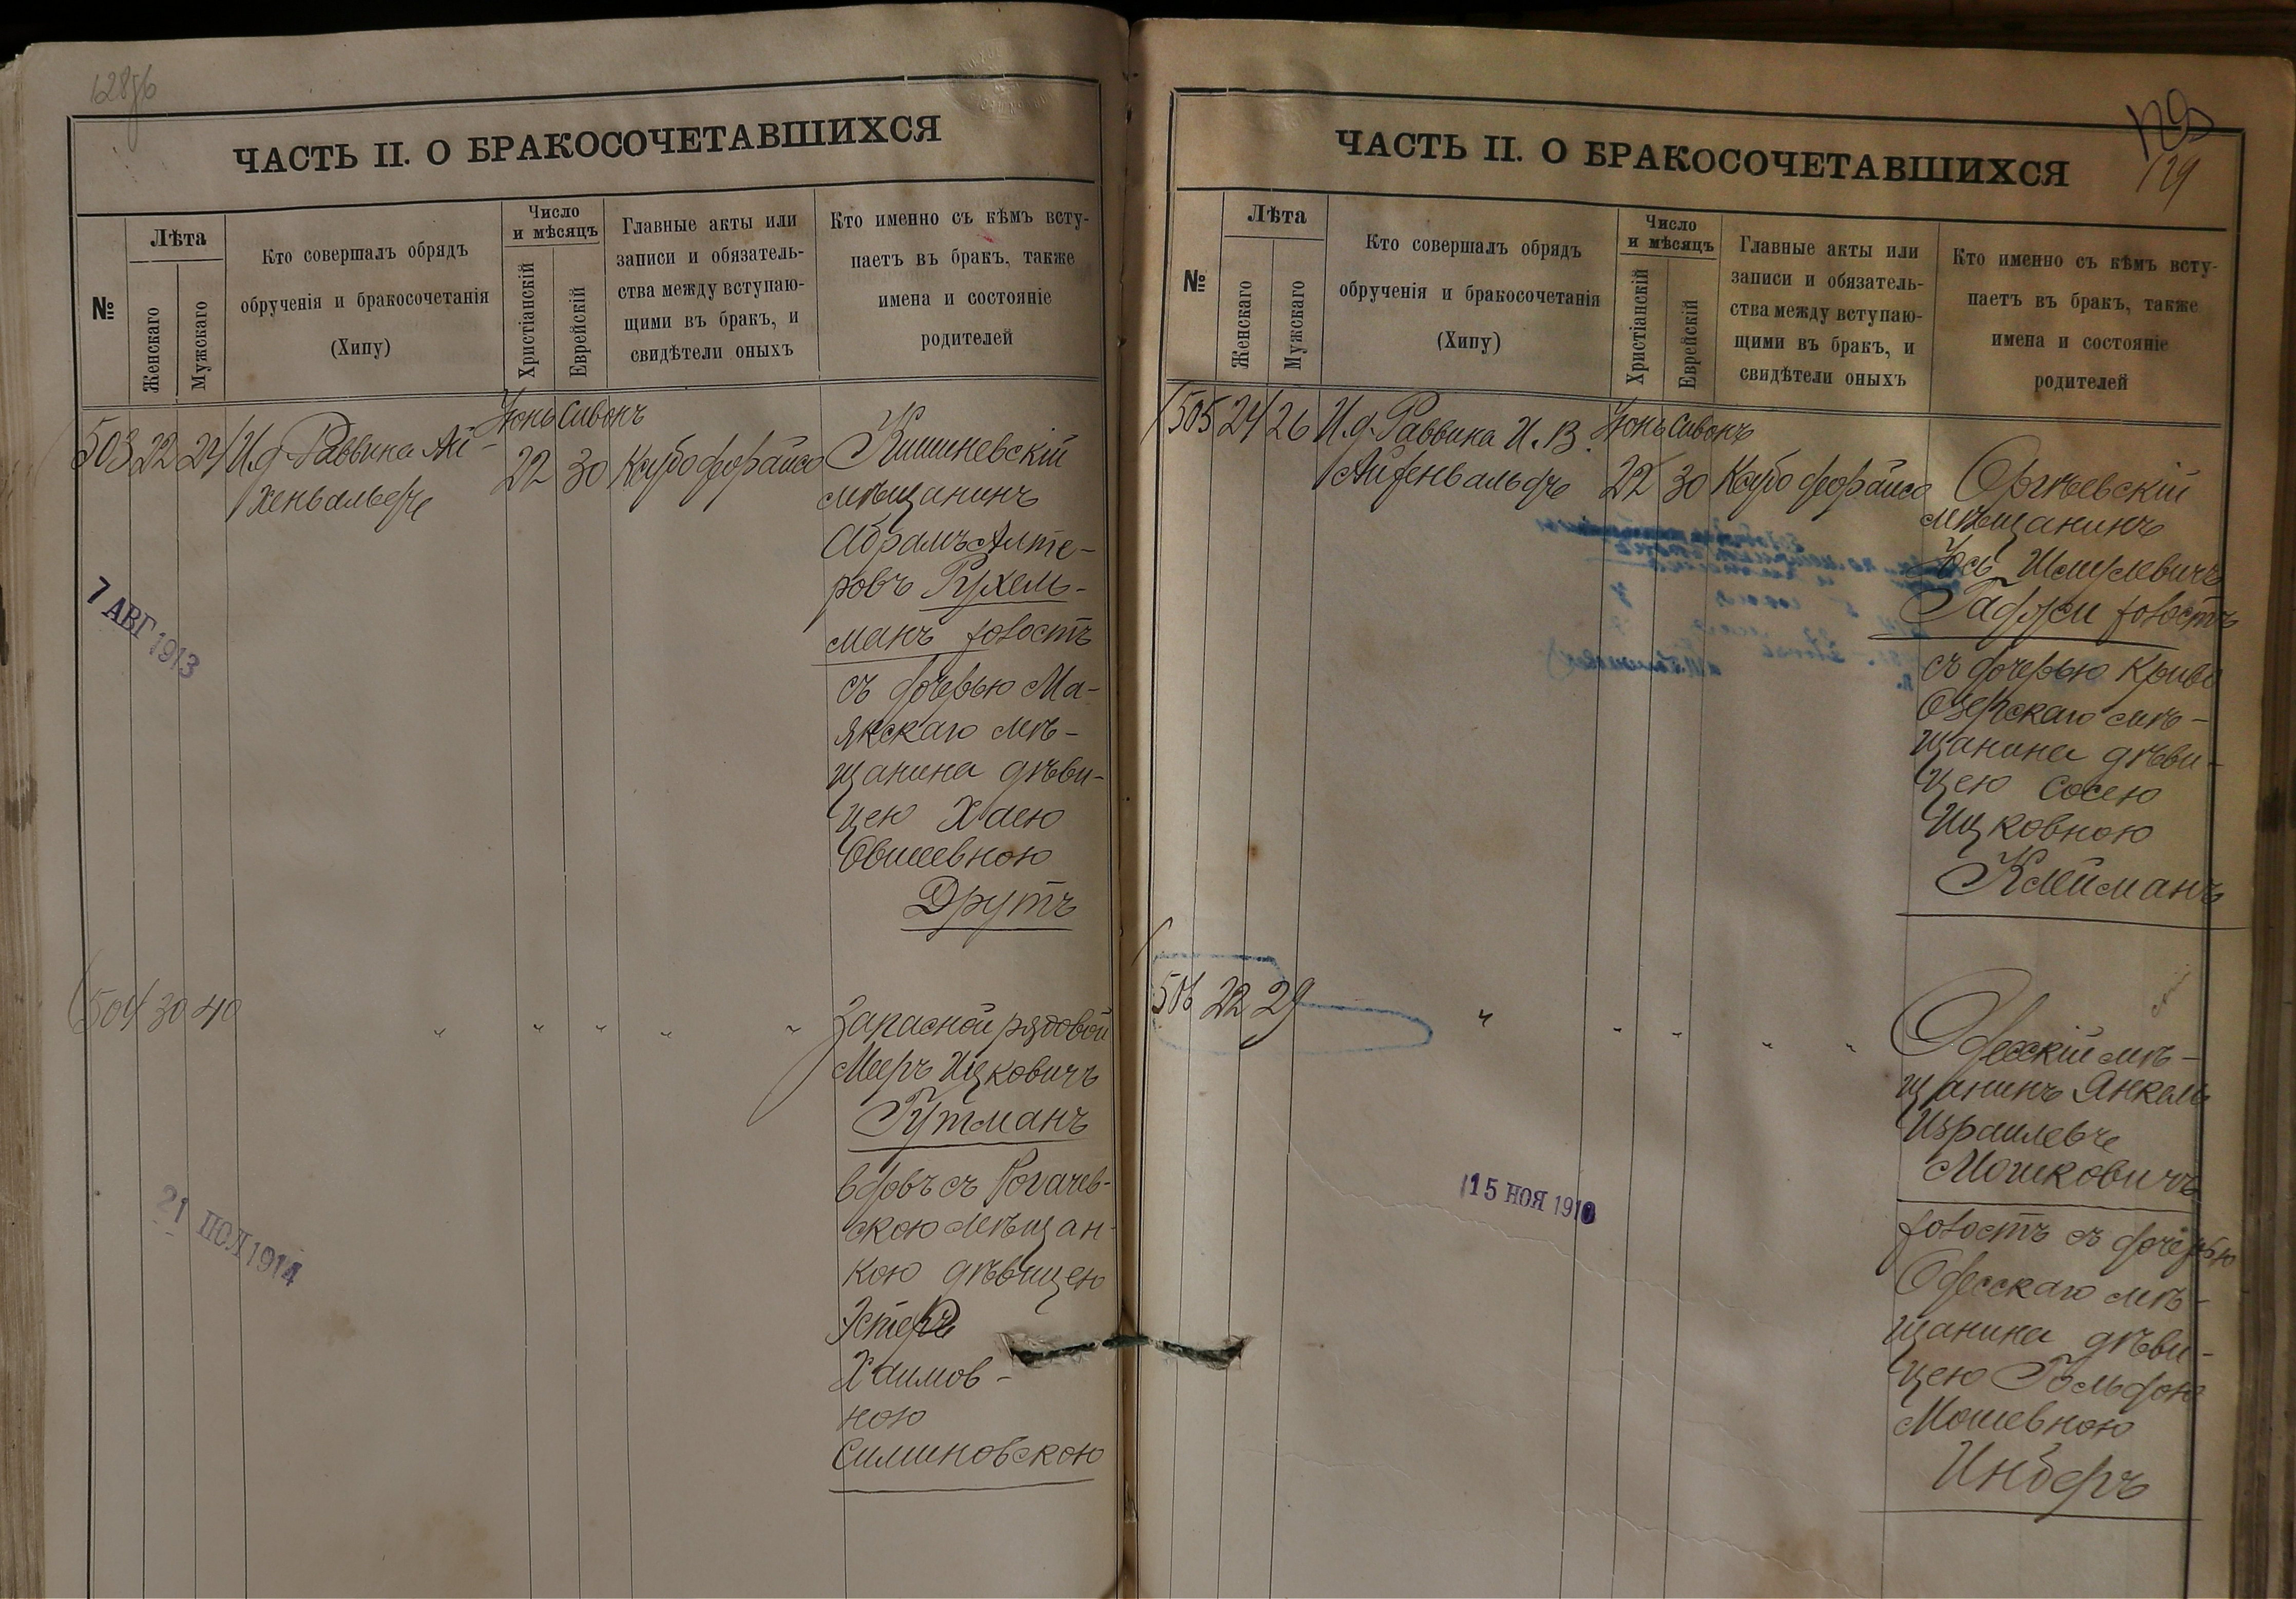 12856
ЧАСТЬ II. О БРАКОСОЧЕТАВШИХСЯ
№
Лѣта
Женскаго
Мужскаго
Кто совершалъ обрядъ
обрученія и бракосочетанія
(Хипу)
Число
и мѣсяцъ
Христіанскій
Еврейскій
Главные акты или
записи и обязатель-
ства между вступаю-
щими въ бракъ, и
свидѣтели оныхъ
Кто именно съ кѣмъ всту-
паетъ въ бракъ, также
имена и состояніе
родителей
Іюнь Сивонъ
503 22 24 И.д. Раввина Ай-
хенвальдъ
22 30 Каубо форайсо
Кишиневскій
мѣщанинъ
Абрамъ Алте-
ровъ Рухель-
манъ холостъ
съ дочерью Ма-
якскаго мѣ-
щанина дѣви-
цею Хаею
Овшиевною
Друтъ
7 АВГ 1913
504 30 40 " " " " "
Запасной рядовой
Мееръ Ицковичъ
Гутманъ
вдовъ съ Рогачев-
скою мѣщан-
кою дѣвицею
Эстеръ
Хаимов-
ною
Симиновскою
21 ІЮЛ 1914
129
ЧАСТЬ II. О БРАКОСОЧЕТАВШИХСЯ
№
Лѣта
Женскаго
Мужскаго
Кто совершалъ обрядъ
обрученія и бракосочетанія
(Хипу)
Число
и мѣсяцъ
Христіанскій
Еврейскій
Главные акты или
записи и обязатель-
ства между вступаю-
щими въ бракъ, и
свидѣтели оныхъ
Кто именно съ кѣмъ всту-
паетъ въ бракъ, также
имена и состояніе
родителей
Іюнь Сивонъ
505 24 26 И.д. Раввина И. В.
Айхенвальдъ
22 30 Каубо форайсо
Оргѣевскій
мѣщанинъ
Іось Шмулевичъ
холостъ
съ дочерью Криво
Озерскаго мѣ-
щанина дѣви-
цею Сосею
Ицковною
Клейманъ
506 22 29 " " " " "
Одесскій мѣ-
щанинъ Янкель
Израилевъ
Мошковичъ
холостъ съ дочерью
Одесскаго мѣ-
щанина дѣви-
цею Гольдою
Мошевною
Инберъ
15 НОЯ 1910